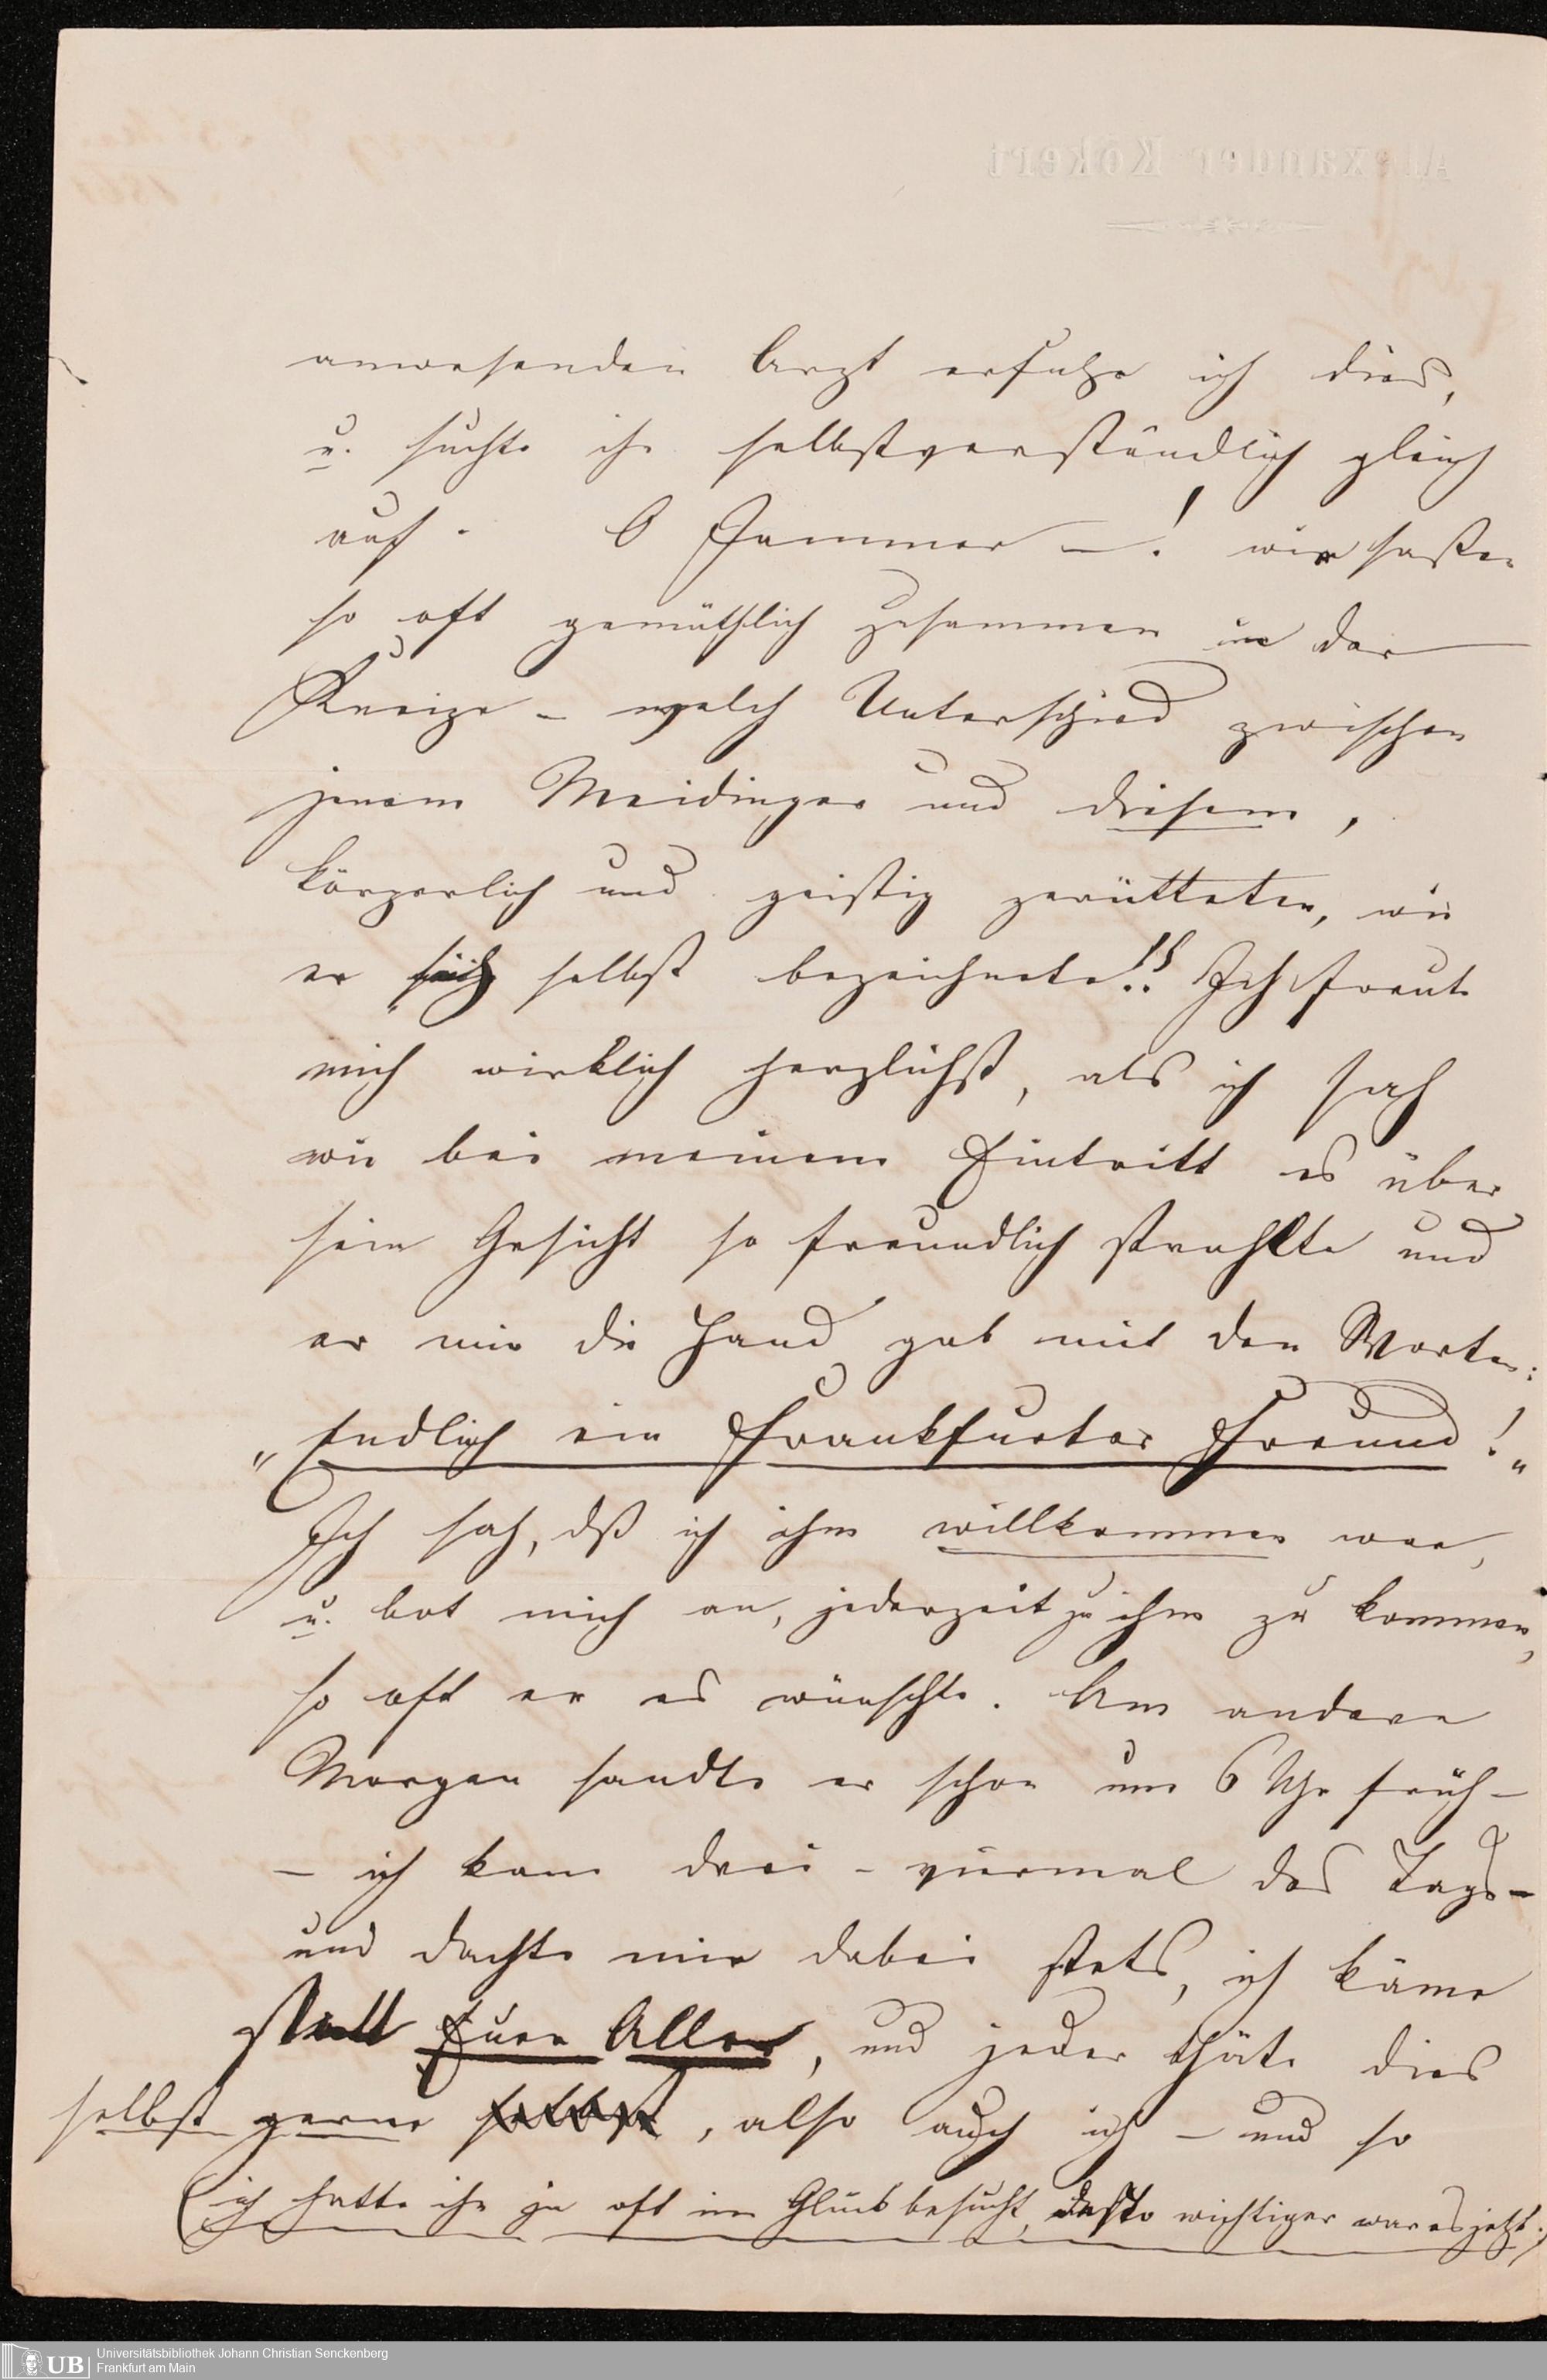 anwesenden Arzt erfuhr ich dies,
u. suchte ihn selbstverständlich gleich
auf. O Jammer –! wir saßen
so oft gemüthlich zusammen in der
Kneipe – welch Unterschied zwischen
jenem Meidinger und diesem,
körperlich und geistig zerütteten, wie
er sich selbst bezeichnete!! Ich freute
mich wirklich herzlichst, als ich sah
wie bei meinem Eintritt es über
sein Gesicht so freundlich strahlte und
er mir die Hand gab mit den Worten:
„Endlich ein Frankfurter Freund!"
Ich sah, dß ich ihm willkommen war,
u. bot mich an, jederzeit zu ihm zu kommen,
so oft er es wünschte. Am andern
Morgen sandte er schon um 6 Uhr früh –
– ich kam drei-viermal des Tags –
und dachte mir dabei stets, ich käme
statt Euer Aller, und jeder thäte dies
selbst gerne selbst, also auch ich – und so
(ich hatte ihn ja oft im Glück besucht, desto wichtiger war es jetzt.)
Alexander Kökert
Universitätsbibliothek Johann Christian Senckenberg
Frankfurt am Main
UB